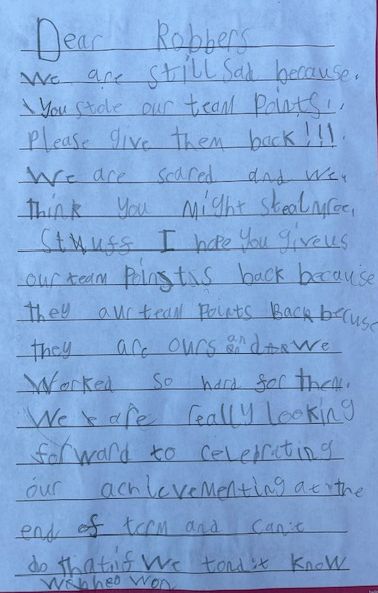 Dear Robbers
We are still sad because.
You stole our team points!,
Please give them back!!!.
We are scared and we,
think you might steal
Stwuff I hope you giveus
our team poinstis back because
they aur team points Back becuse
they are ours and we
Worked so hard for them.
We are really looking
forward to celebrating
our achievementing at the
end of term and can't
do that if we know
won